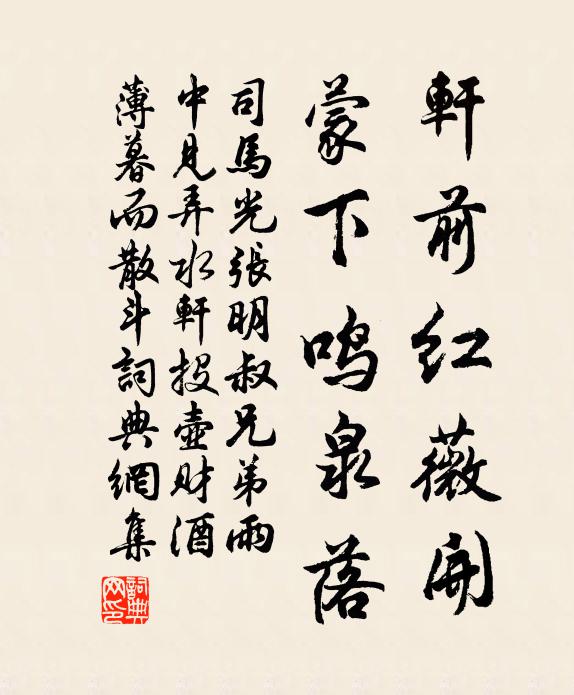 軒前红薇開
蒙下鸣泉落
司馬光張明叔兄弟雨
中見弄水軒投壺财酒
薄暮而散斗詞典網集
詞典网印